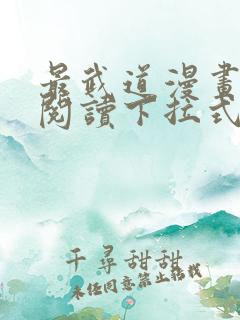 最武道漫畫
閱讀下拉式
千尋甜甜
未经同意禁止搭载